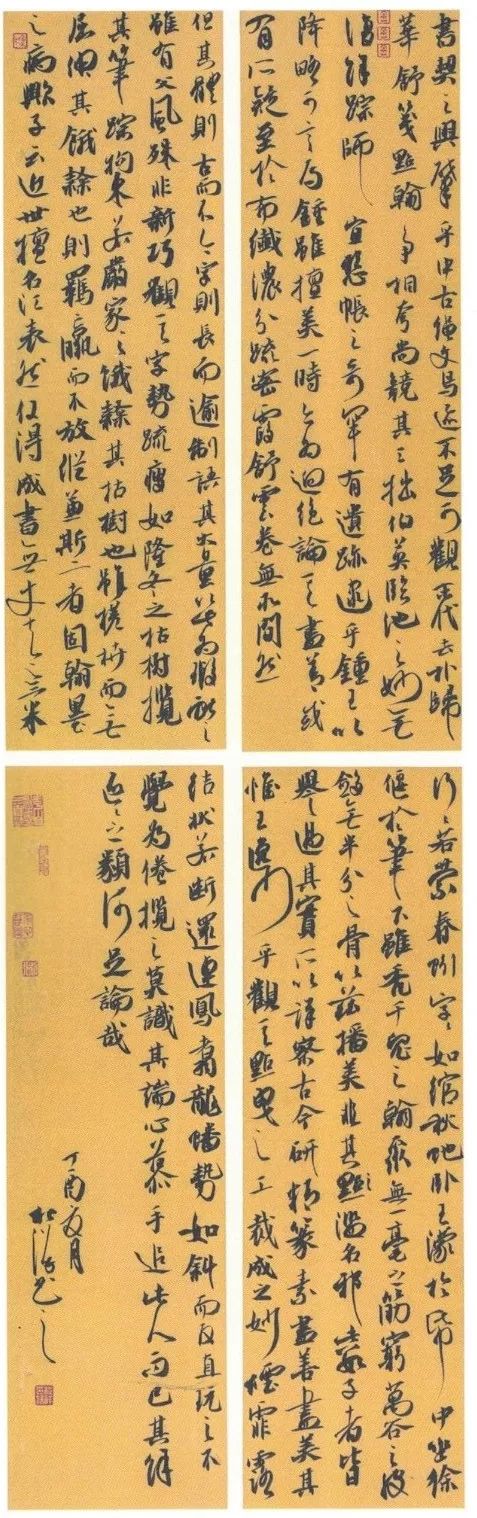 書契之興肇乎中古繩文鳥跡不足可觀末代去朴歸
華舒箋點翰爭相夸尚競其工拙伯英臨池之妙無
復餘蹤師宜懸帳之奇罕有遺跡逮乎鍾王以
降略可言焉鍾雖擅美一時亦為迥絕論其盡善或
有所疑至於布纖濃分疏密霞舒雲卷無所間然
但其體則古而不今字則長而逾制語其大量以此為瑕獻之
雖有父風殊非新巧觀其字勢疏瘦如隆冬之枯樹攬
其筆蹤拘束若嚴家之餓隸其枯樹也雖槎枿而無
屈伸其餓隸也則羈羸而不放縱兼斯二者固翰墨
之病歟子雲近世擅名江表然僅得成書無丈夫之氣
行行若縈春蚓字字如綰秋蛇臥王濛於紙中坐徐
偃於筆下雖禿千兔之翰聚無一毫之筋窮萬谷之皮
斂無半分之骨以茲播美非其點濫名邪此數子者皆
譽過其實所以詳察古今研精篆素盡善盡美其
惟王逸少乎觀其點曳之工裁成之妙煙霏露
結狀若斷還連鳳翥龍蟠勢如斜而反直玩之不
覺為倦攬之莫識其端心慕手追此人而已其餘
區區之類何足論哉
丁酉月
書之